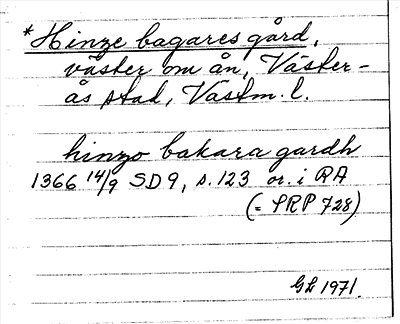 *Hinze bagares gård,
väster om ån, Väster-
ås stad, Västm. l.
hinzo bakara gardh
1366 14/9 SD 9, s. 123 or. i RA
(= SRP 728)
GL 1971